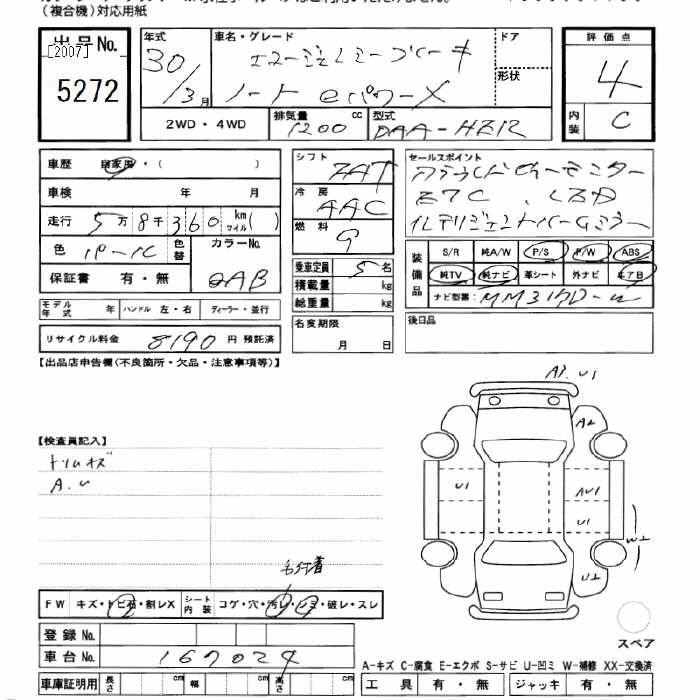 (複合機)対応用紙
出品No.
[2007]
5272
年式 30/3月
車名・グレード
ノート eパワーX
ドア
形状
2WD・4WD
排気量 1200 cc
型式 DAA-HE12
評価点 4
内装 C
車歴 自家用・( )
車検 年 月
走行 5万8千360 km マイル( )
色 パール
色替
カラーNo. QAB
保証書 有・無
シフト 7AT
冷房 AAC
燃料 G
乗車定員 5名
積載量 kg
総重量 kg
セールスポイント
アラウンドビューモニター
ETC LED
インテリジェントルームミラー
装備品
S/R 純A/W P/S P/W ABS
純TV 純ナビ 革シート 外ナビ エアB
ナビ型番: MM317D-W
モデル年式 年 ハンドル 左・右 ディーラー・並行
リサイクル料金 8190 円 預託済
名変期限
月 日
後日品
【出品店申告欄(不良箇所・欠品・注意事項等)】
【検査員記入】
トリムキズ
A.U
A3 U1
A2
U1
AU1
U1
W2
U2
FW キズ・トビ石・割レX
シート内装 コゲ・穴・汚レ・シミ・破レ・スレ
登録No.
車台No. 167024
スペア
A-キズ C-腐食 E-エクボ S-サビ U-凹ミ W-補修 XX-交換済
車庫証明用 長さ cm 幅 cm 高さ cm
工具 有・無 ジャッキ 有・無